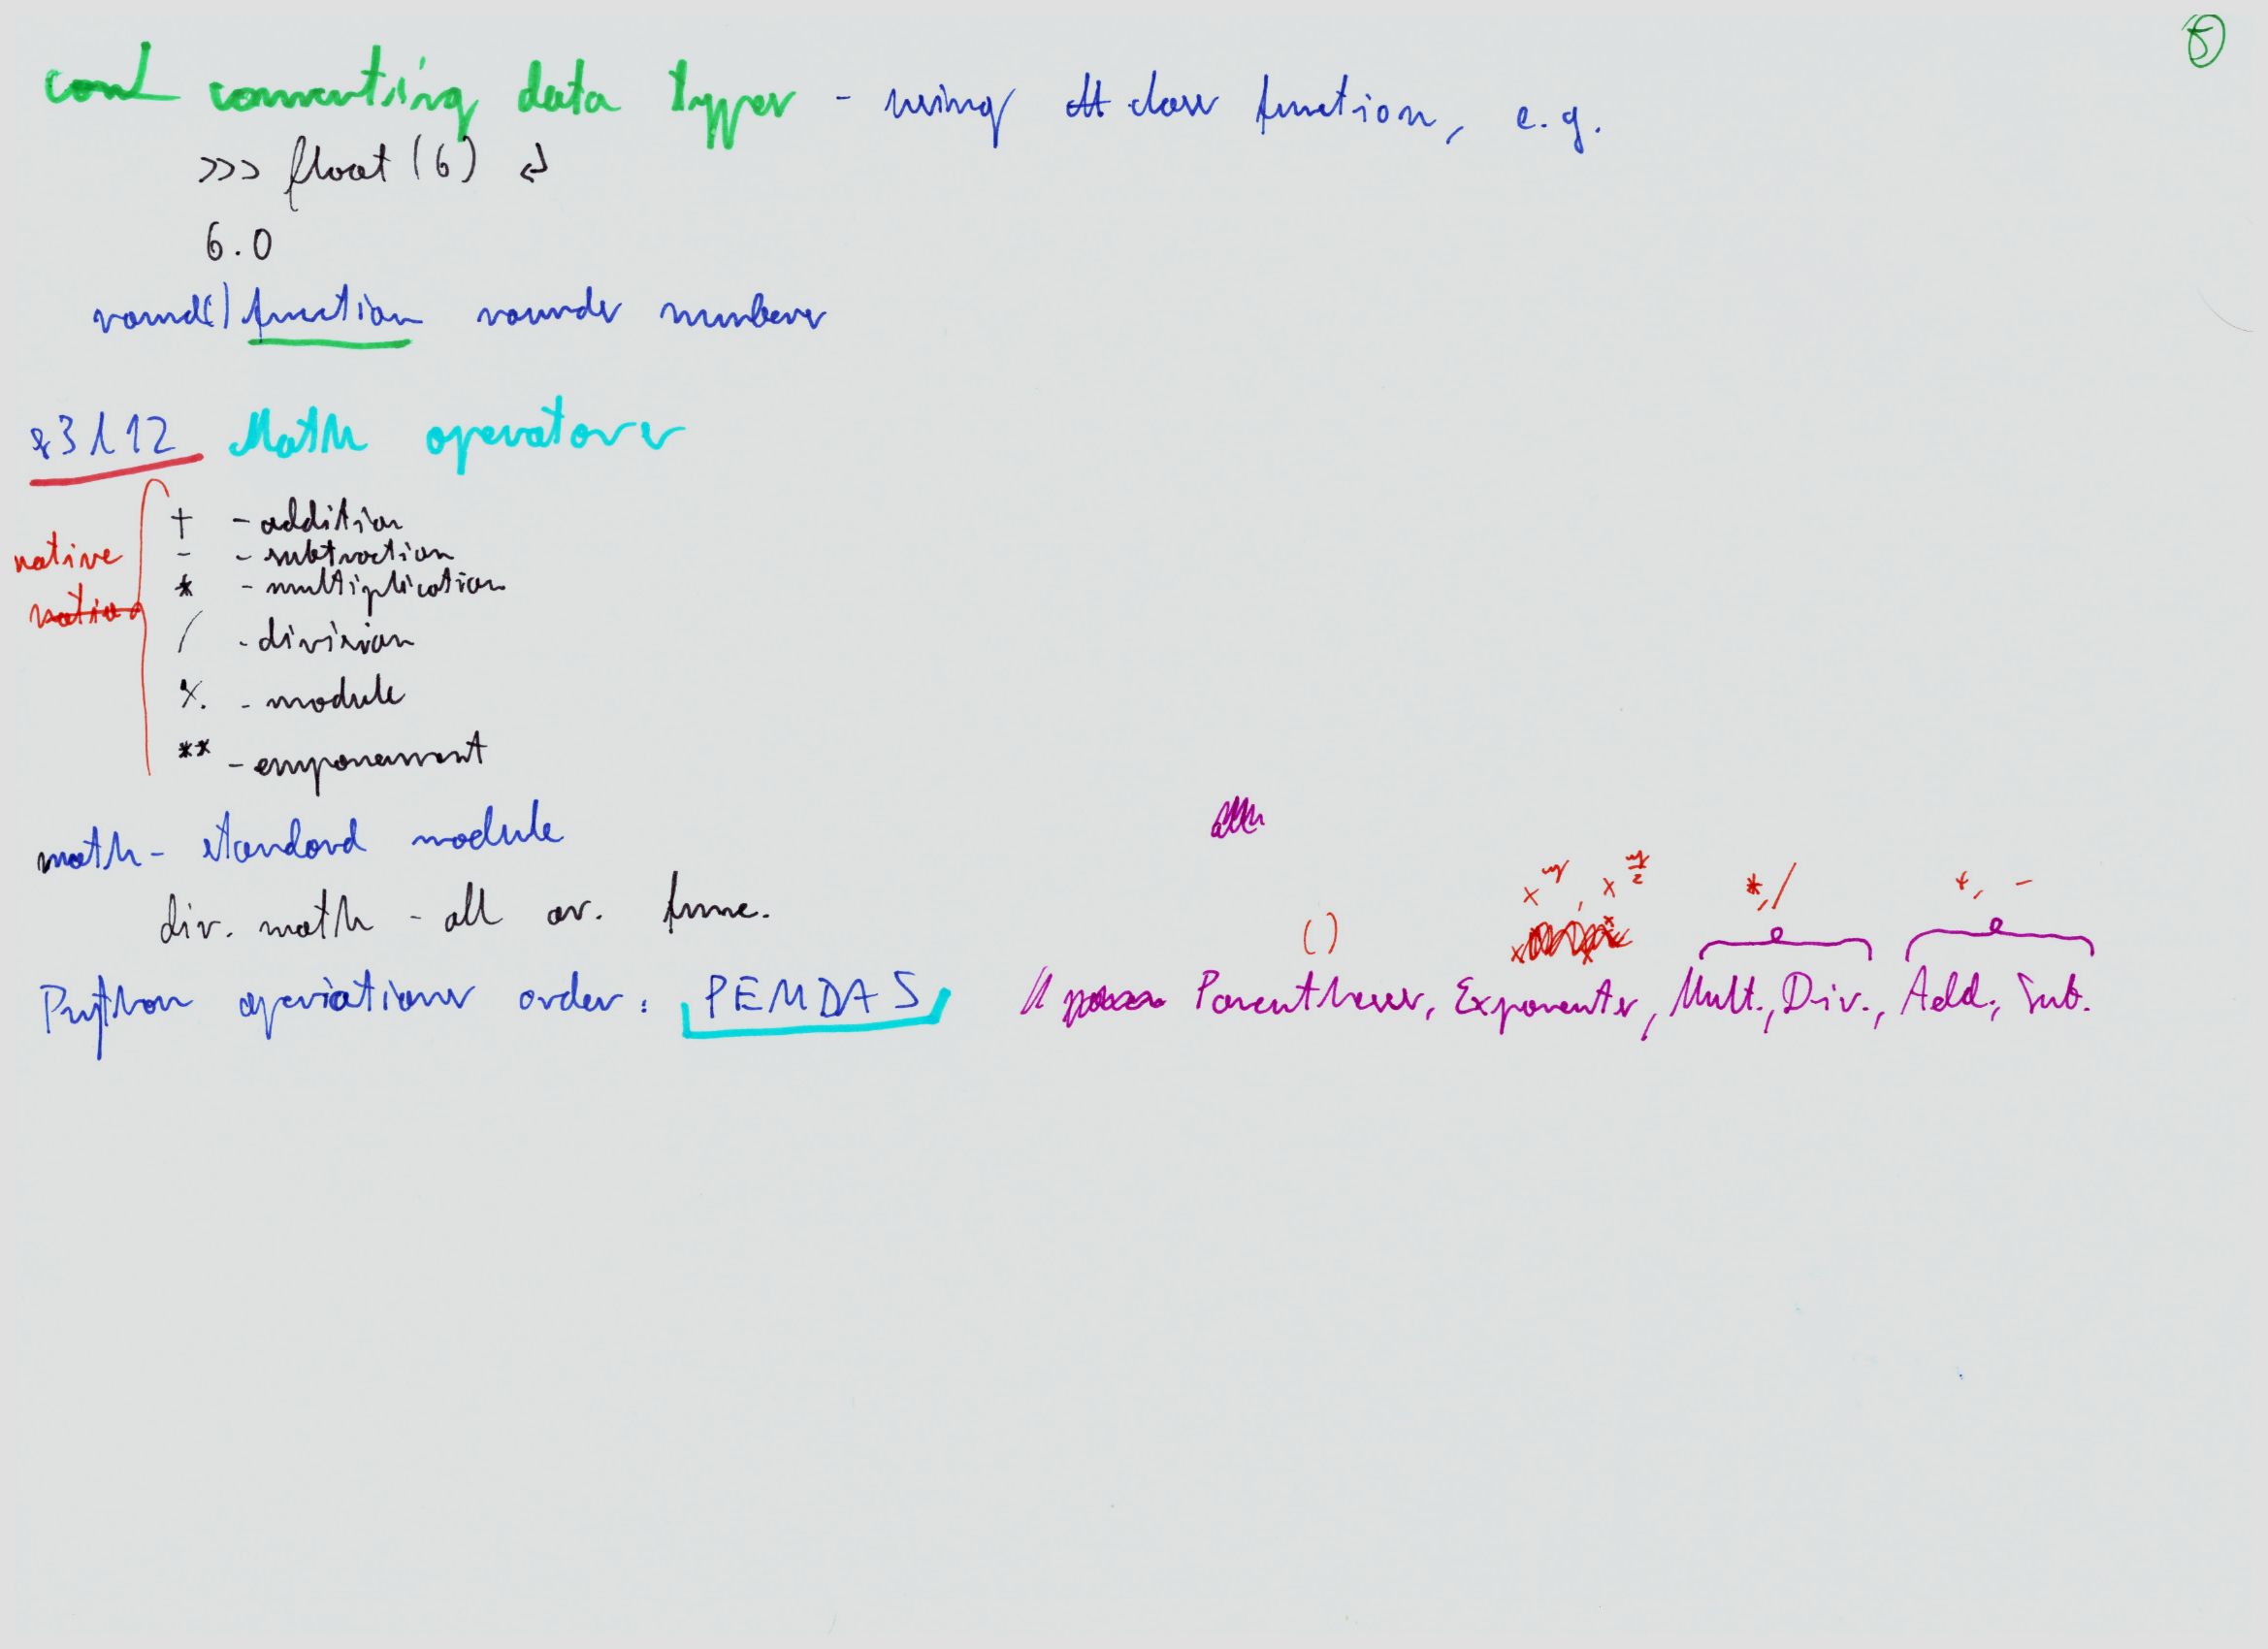 5
converting data types - using class function, e.g.
>>> float(6) ↵
6.0
round() function rounds numbers
Math operators
native
+ - addition
- - subtraction
* - multiplication
/ - division
% - module
** - emponemant
math - standard module
dir. math - all av. func.
( ) x^y, x^(y/z) *, / +, -
Python operiations order: PEMDAS // Parentheses, Exponents, Mult., Div., Add., Sub.